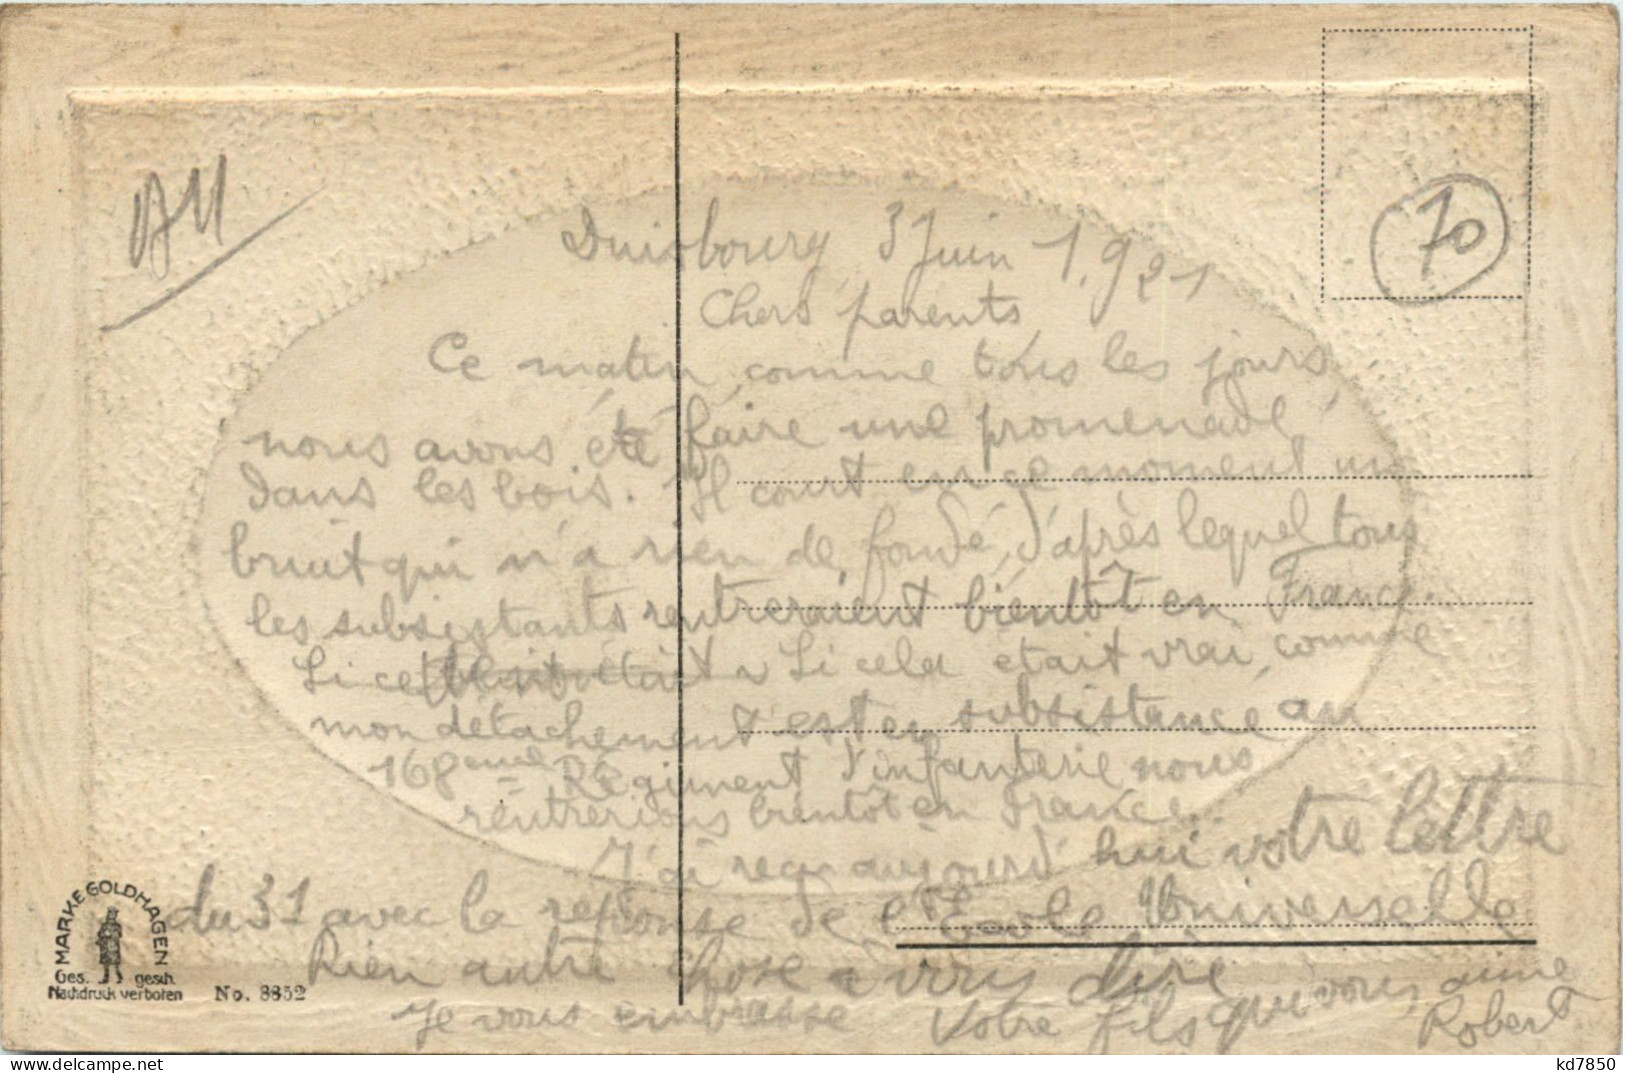 Duisbourg 3 Juin 1.921
Chers parents
Ce matin comme tous les jours
nous avons été faire une promenade
dans les bois. Il court en ce moment un
bruit qui n'a rien de fondé, d'après lequel tous
les subsistants rentreraient bientôt en France.
Si cela était vrai, comme
mon détachement est en subsistance au
168eme Régiment d'infanterie nous
rentrerions bientôt en France.
J'ai reçu aujourd'hui votre lettre
du 31 avec la réponse de l'Ecole Universelle
Rien autre chose à vous dire
Je vous embrasse Votre fils qui vous aime
Robert
70
MARKE GOLDHAGEN
Ges. gesch.
Nachdruck verboten No. 8852
kd7850